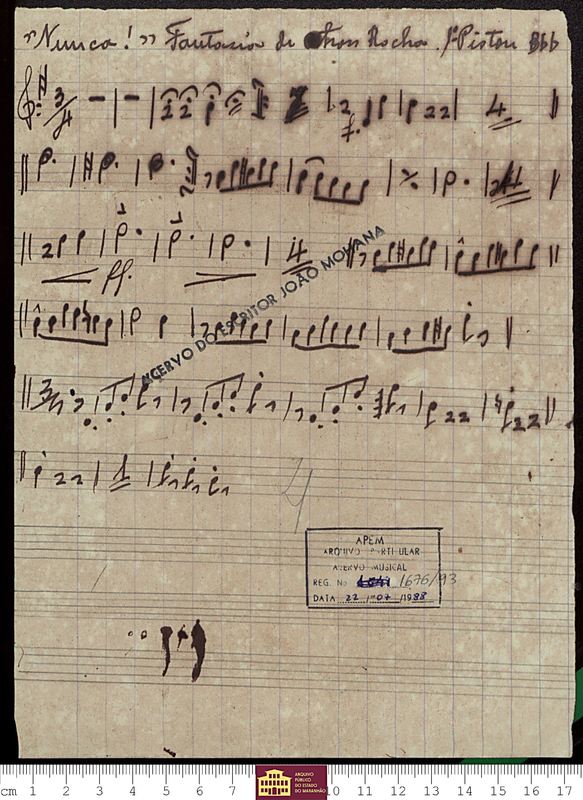 "Nunca!" Fantasia de Rocha. 1º Piston Bbb
3/4
2
4
ff.
4
ACERVO DO ESCRITOR JOÃO MOHANA
3
1
APEM
ARQUIVO PARTICULAR
ACERVO MUSICAL
REG. No 1676/93
DATA 22/07/1988
cm 1 2 3 4 5 6 7 10 11 12 13 14 15 16 17
ARQUIVO
PÚBLICO
DO ESTADO
DO MARANHÃO